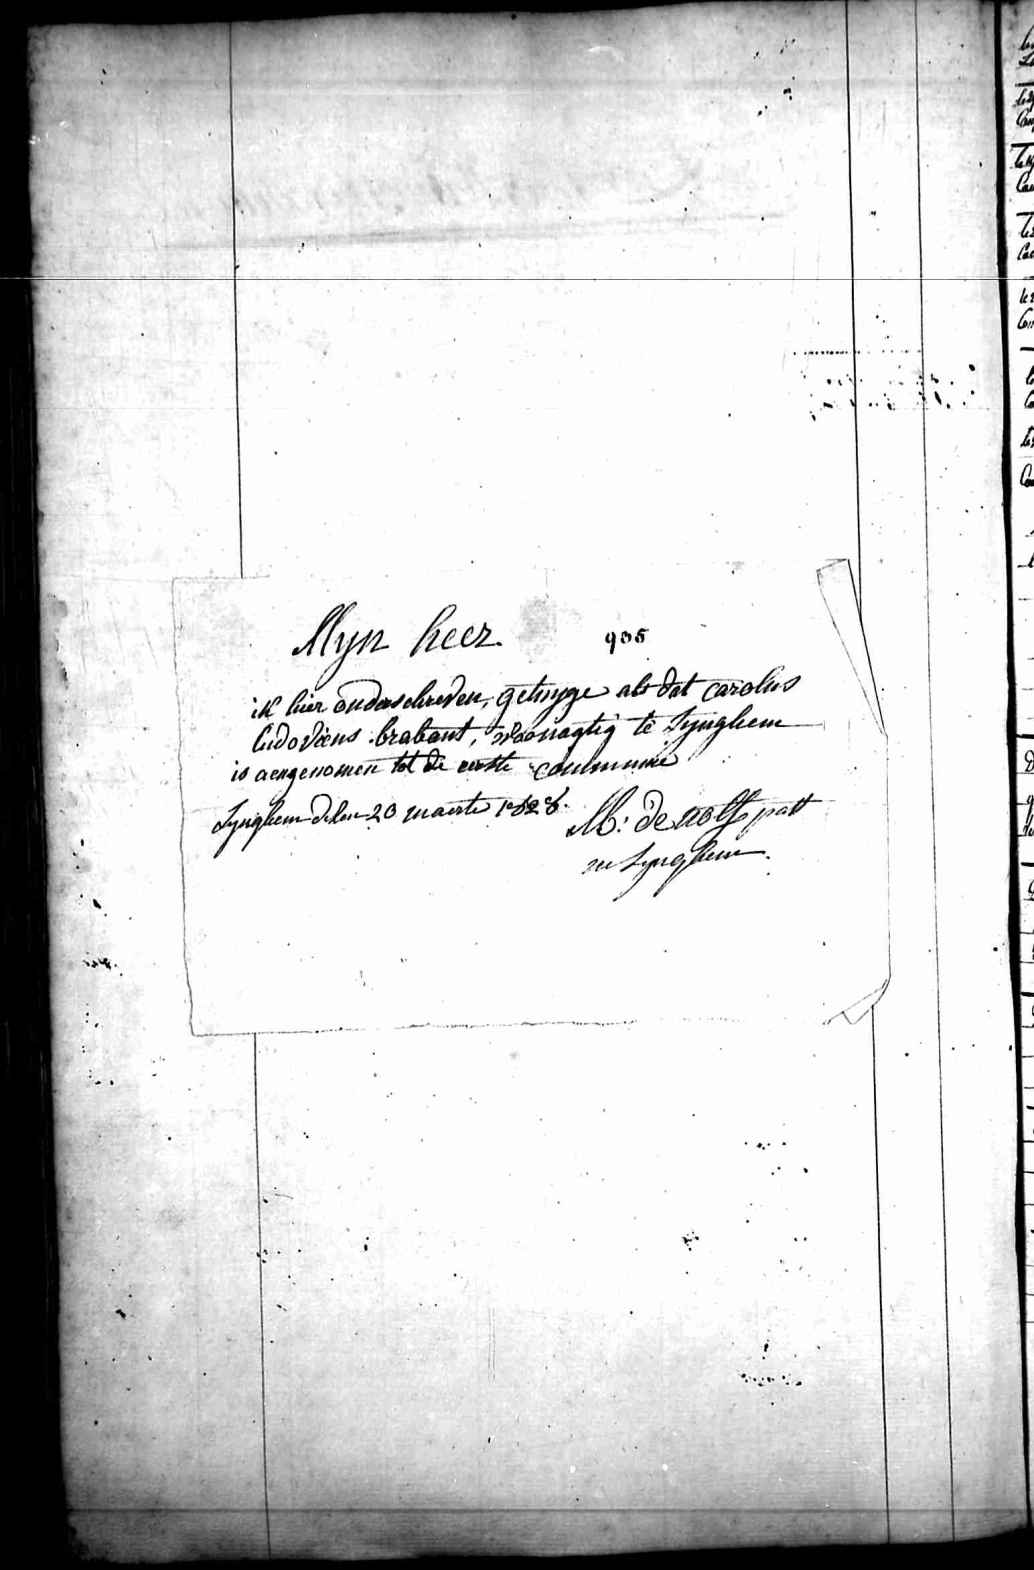 Myn heer.
905
ik hier onderschreven, getuyge als dat carolus
ludovicus brabant, woonagtig te Synghem
is aengenomen tot de eerste communie
Synghem delen 20 maerte 1828.
M: de wolf past
Synghem.